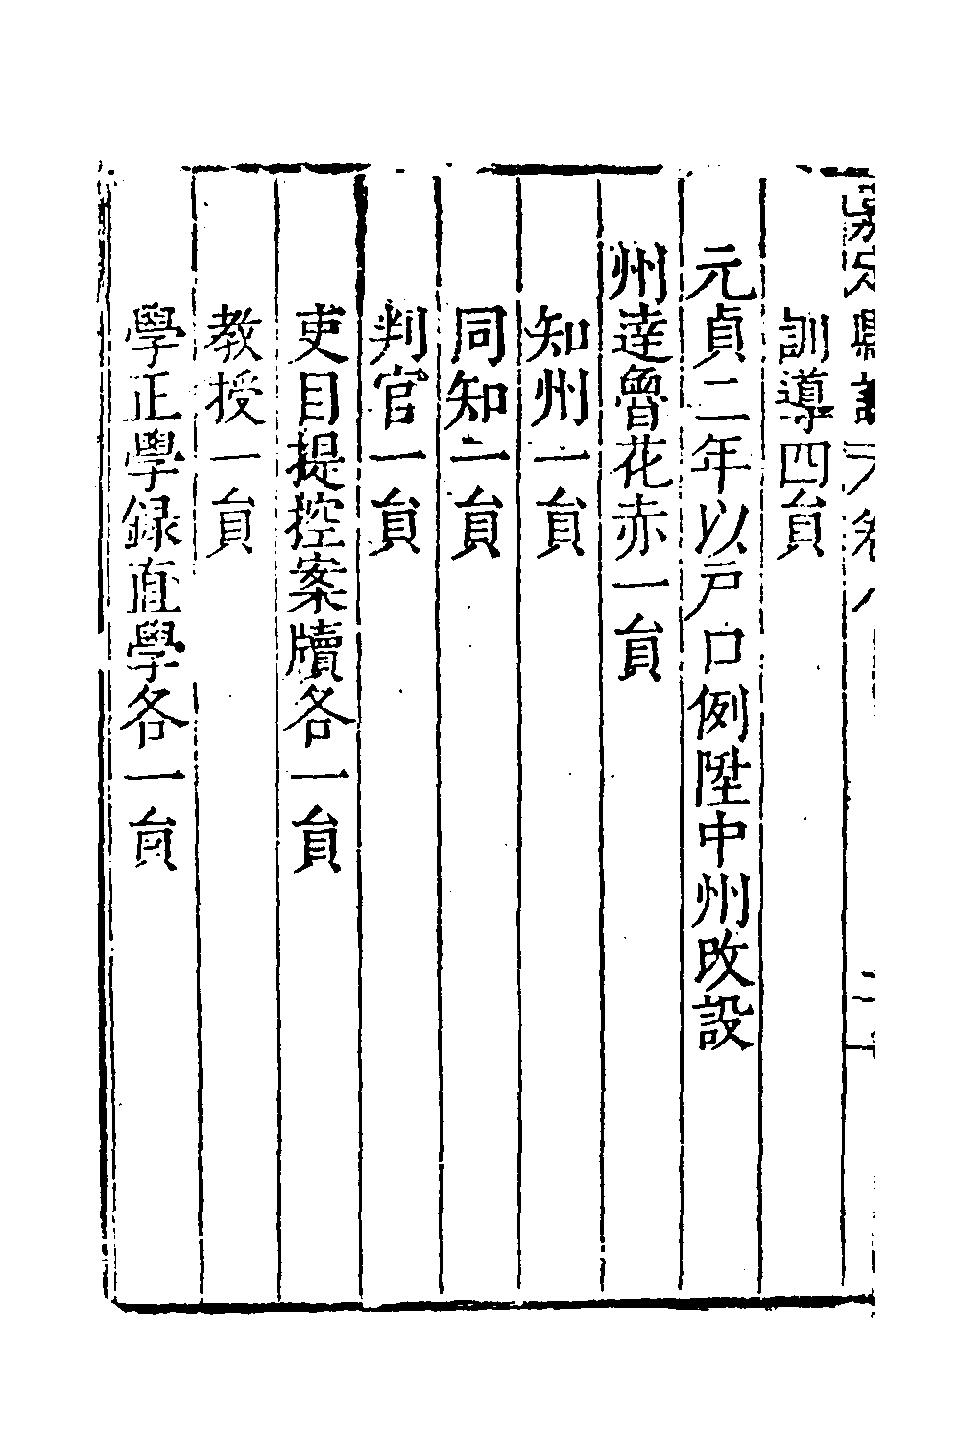 訓導四員
元貞二年以戸口例陞中州改設
州達魯花赤一員
知州一員
同知二員
判官一員
吏目提控案牘各一員
教授一員
學正學録直學各一員